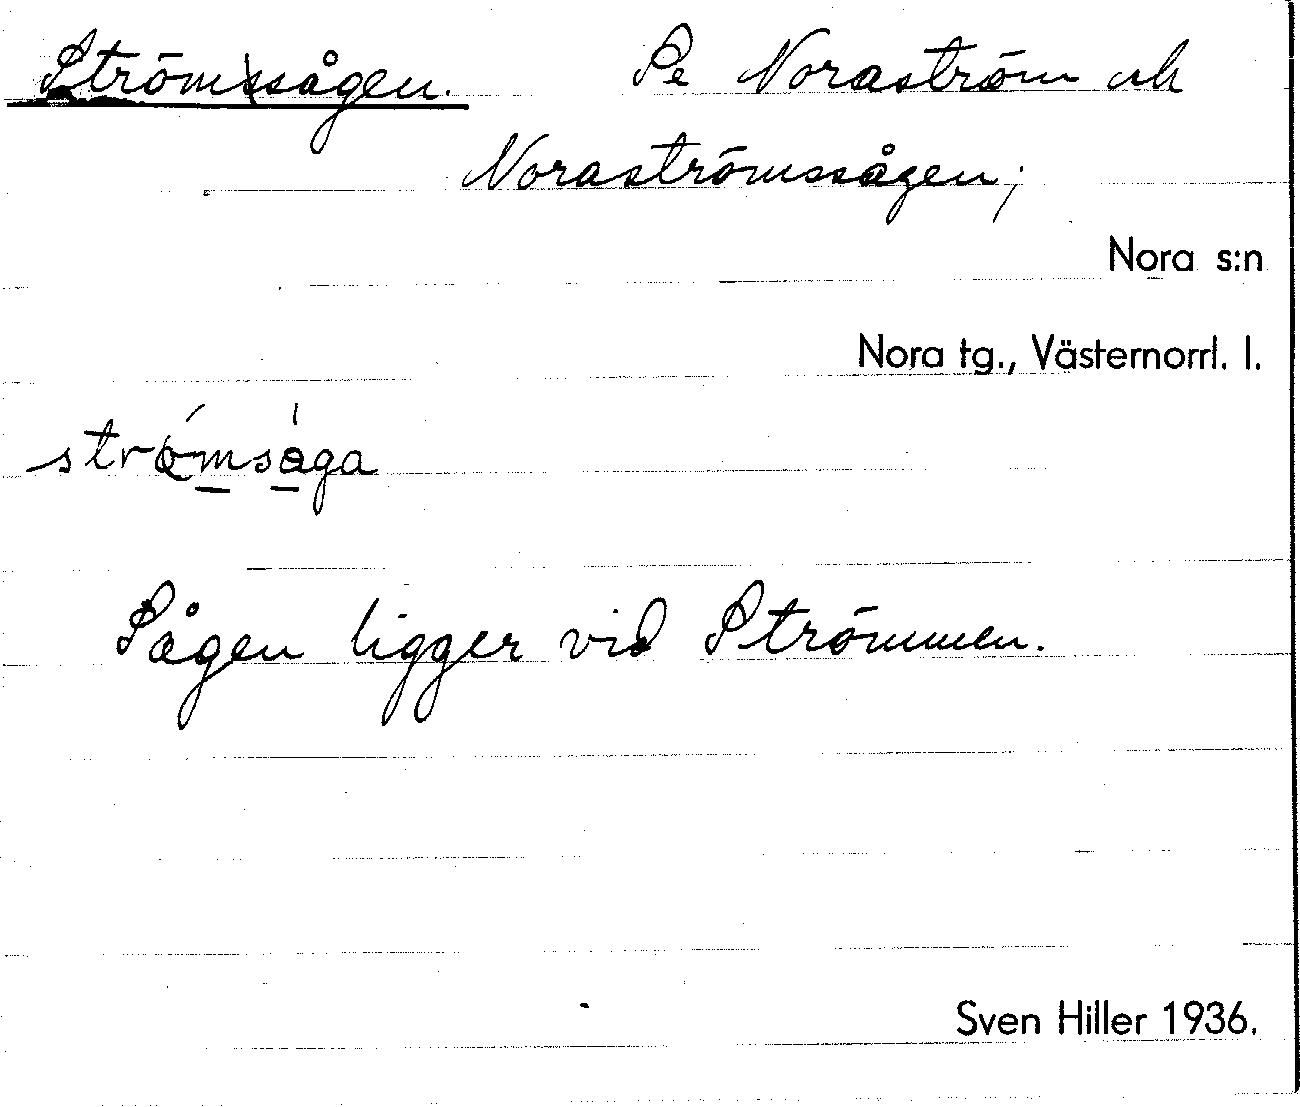 Strömssågen. Se Noraström och
Noraströmssågen;
Nora s:n
Nora tg., Västernorrl. l.
Sågen ligger vid Strömmen.
Sven Hiller 1936.